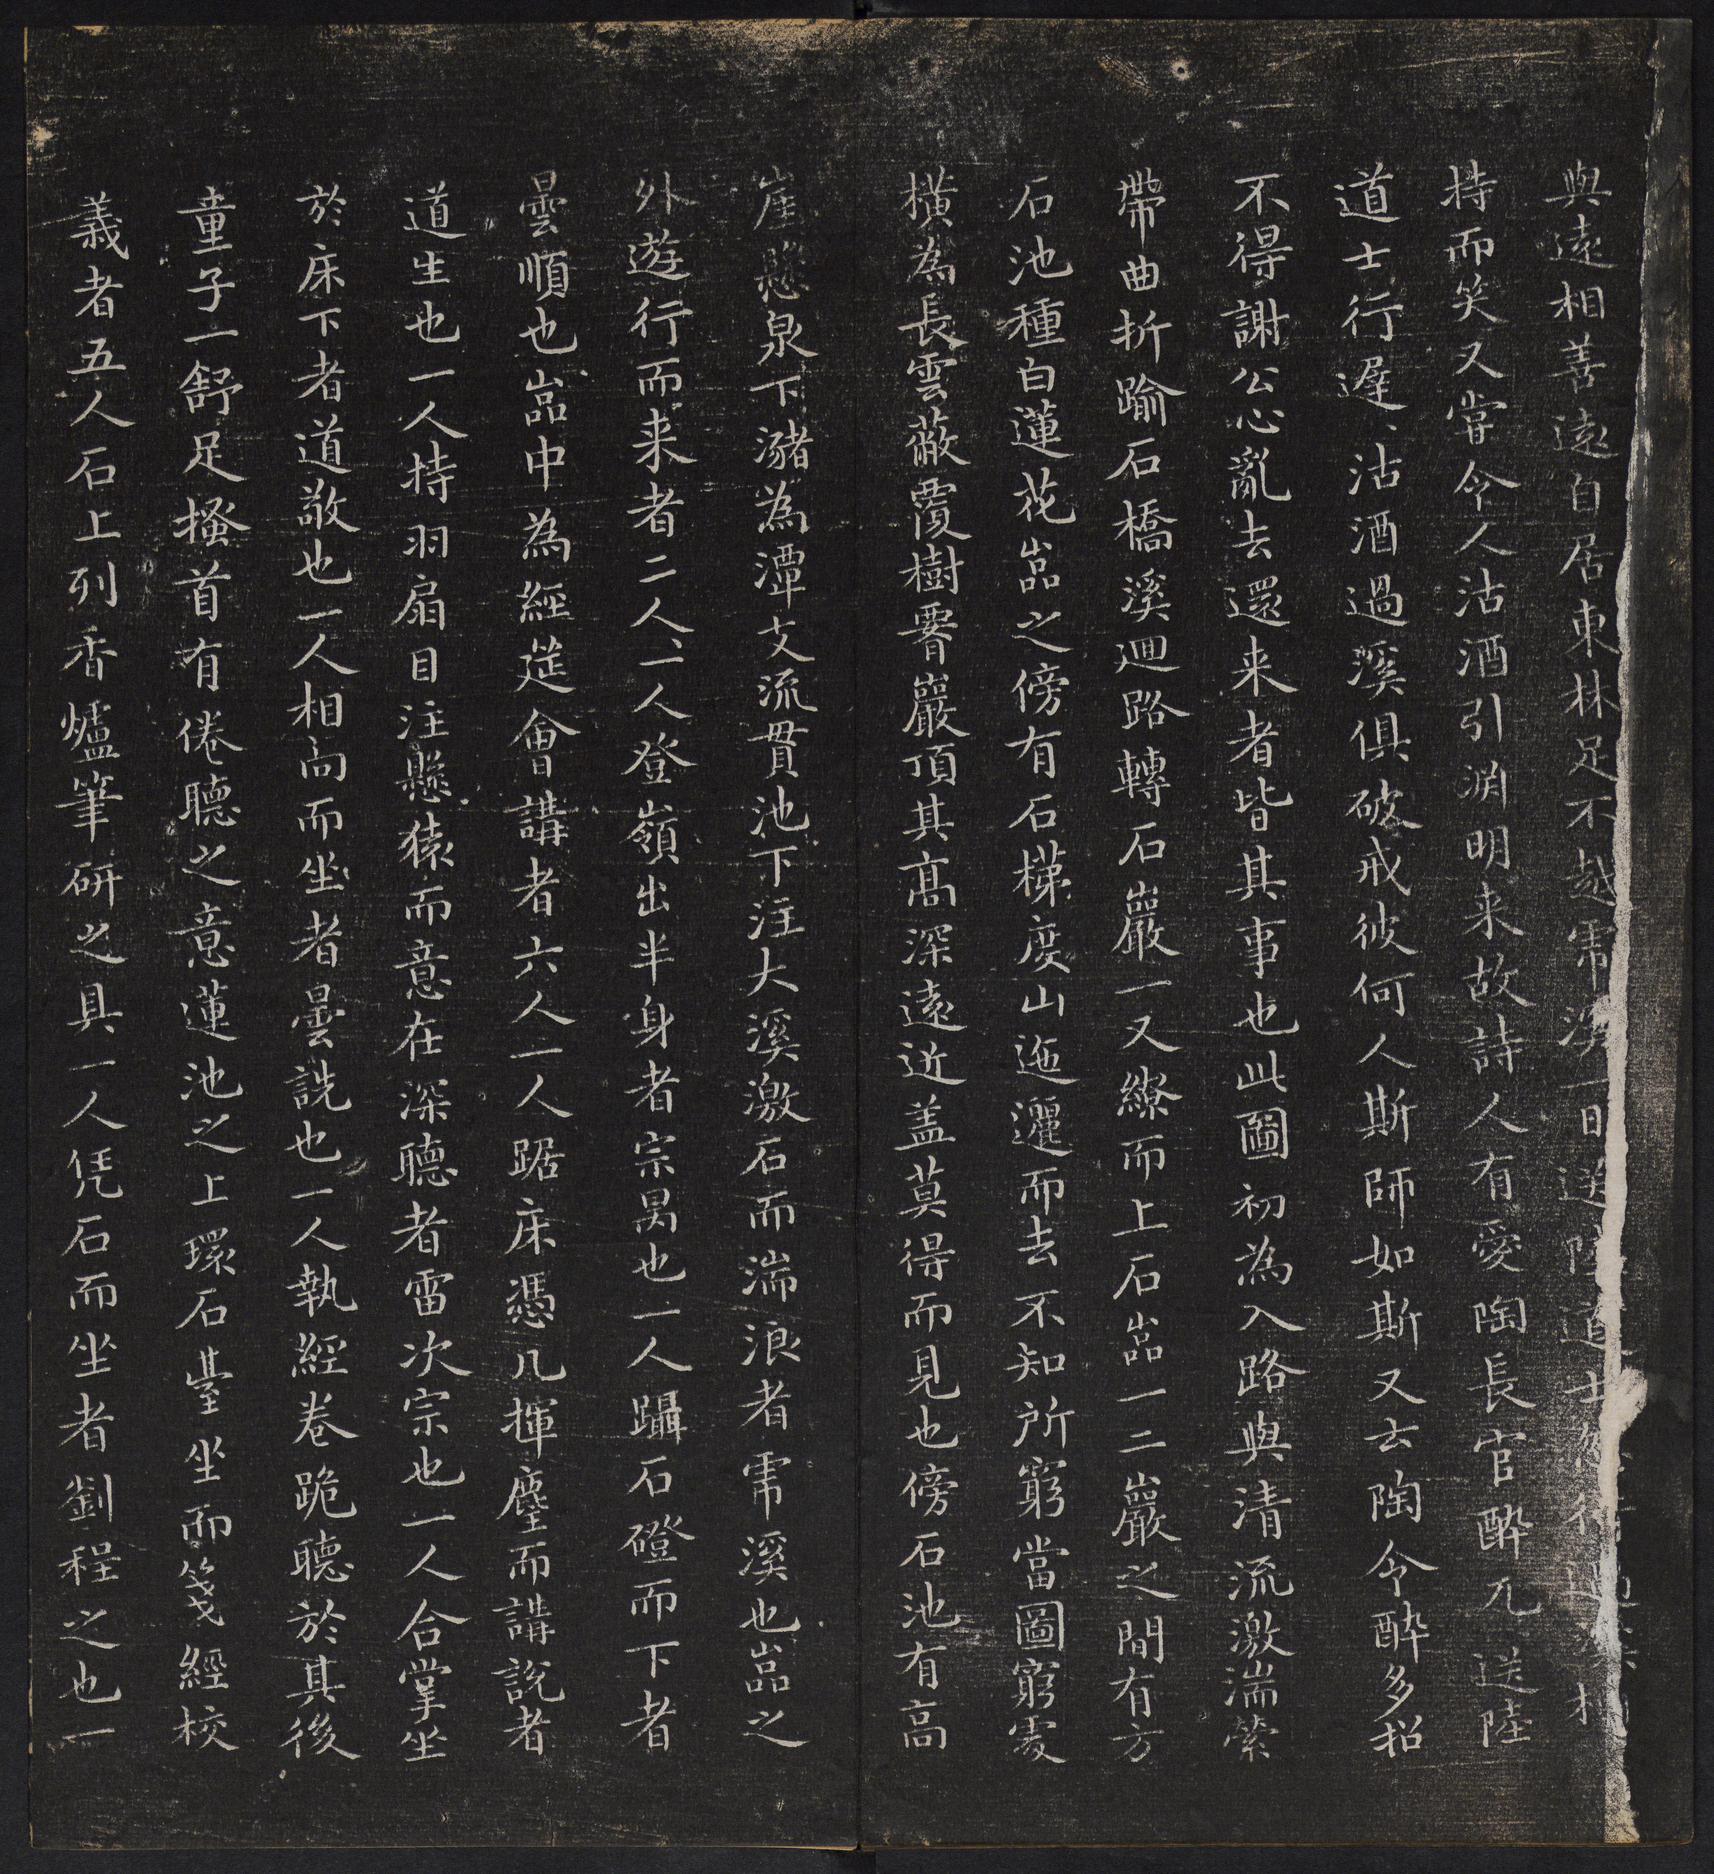 與遠相善遠自居東林足不越虎溪一日送陸道士忽行過溪相
持而笑又嘗令人沽酒引淵明来故詩人有愛陶長官醉兀兀送陸
道士行遲遲沽酒過溪俱破戒彼何人斯師如斯又云陶令醉多招
不得謝公心亂去還来者皆其事也此圖初為入路與清流激湍縈
帶曲折踰石橋溪迴路轉石巖一又繚而上石嵓一二巖之間有方
石池種白蓮花嵓之傍有石梯度山迤邐而去不知所窮當圖窮處
橫為長雲蔽覆樹腰巖頂其髙深遠近盖莫得而見也傍石池有高
崖懸泉下瀦為潭支流貫池下注大溪激石而湍浪者虎溪也嵓之
外遊行而来者二人一人登嶺出半身者宗昺也一人躡石磴而下者
曇順也嵓中為經筵會講者六人一人踞床憑几揮麈而講說者
道生也一人持羽扇目注懸猿而意在深聽者雷次宗也一人合掌坐
於床下者道敬也一人相向而坐者曇詵也一人執經卷跪聽於其後
童子一舒足搔首有倦聽之意蓮池之上環石臺坐而箋經校
義者五人石上列香爐筆研之具一人凭石而坐者劉程之也一